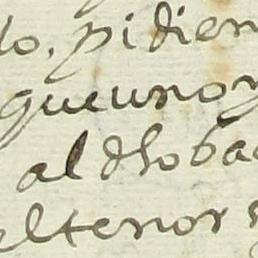 lo, pidien
que uno y
al dho ba
el tenor s